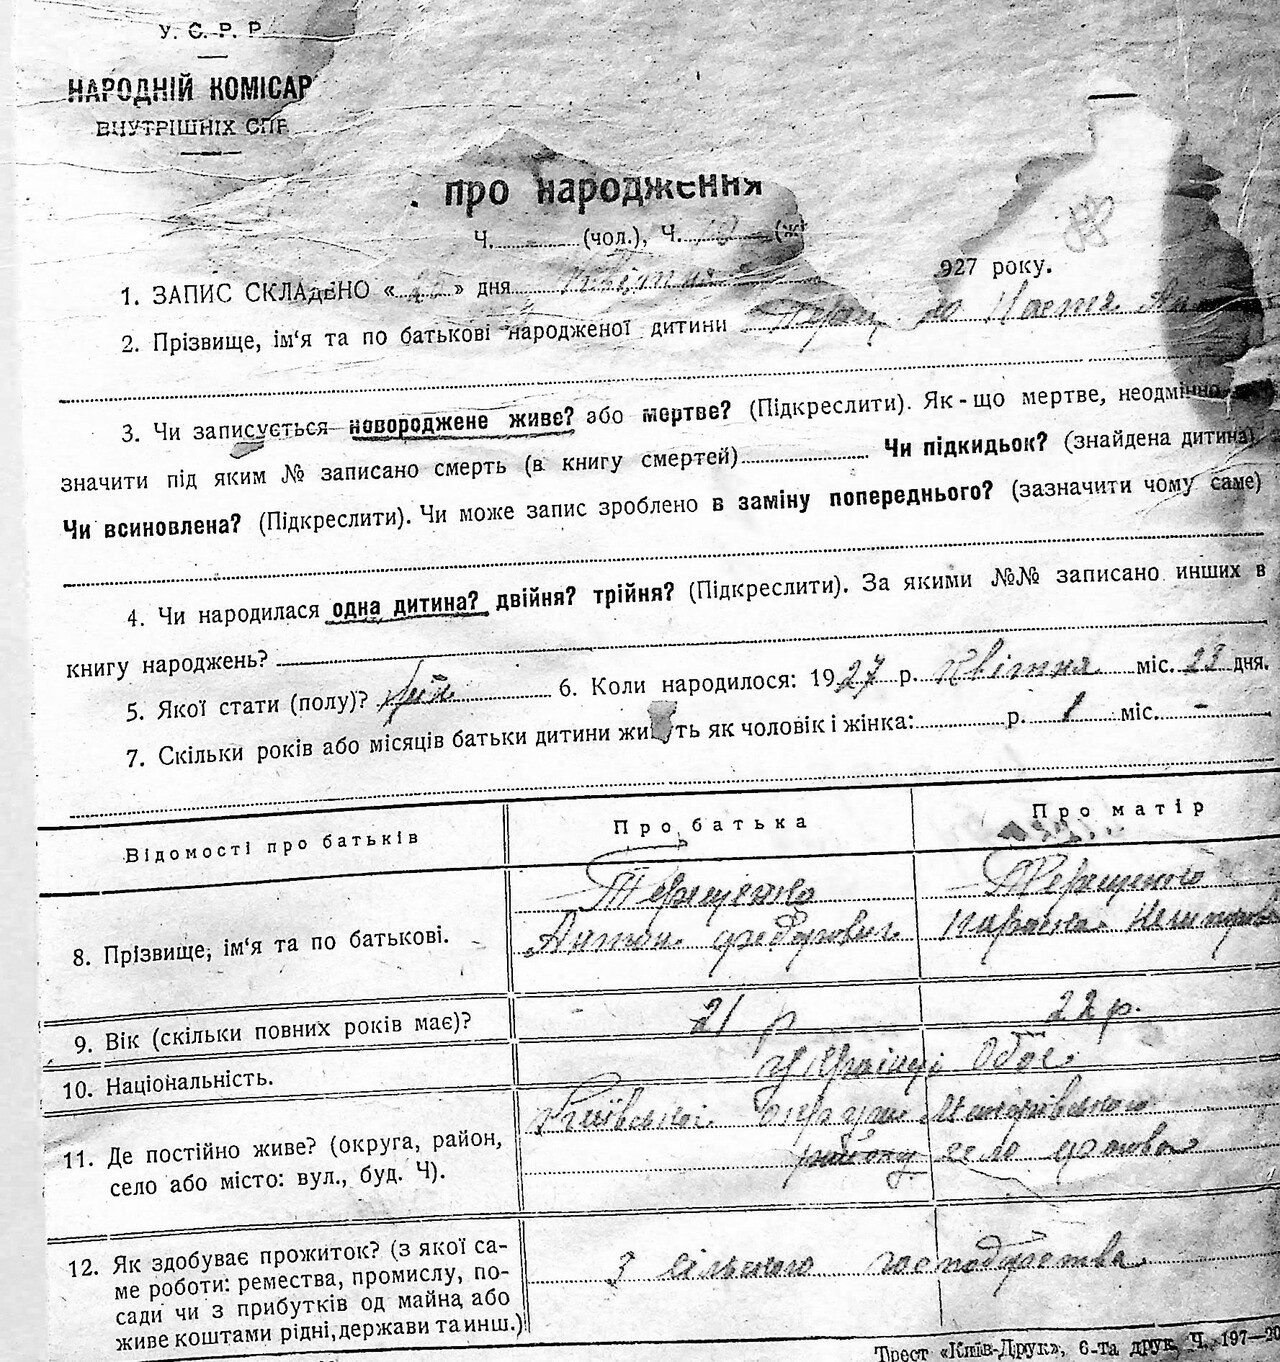 У. С. Р. Р.
НАРОДНІЙ КОМІСАР
ВНУТРІШНІХ СПР
про народження
Ч. (чол.), Ч. (ж
1. ЗАПИС СКЛАДЕНО « » дня квітня 927 року.
2. Прізвище, ім‘я та по батькові народженої дитини Настя
3. Чи записується новороджене живе? або мертве? (Підкреслити). Як-що мертве, неодмінно
значити під яким № записано смерть (в книгу смертей) Чи підкидьок? (знайдена дитина)
Чи всиновлена? (Підкреслити). Чи може запис зроблено в заміну попереднього? (зазначити чому саме)
4. Чи народилася одна дитина? двійня? трійня? (Підкреслити). За якими №№ записано инших в
книгу народжень?
5. Якої стати (полу)? 6. Коли народилося: 1927 р. квітня міс. 23 дня.
7. Скільки років або місяців батьки дитини живуть як чоловік і жінка: р. 1 міс. -
Відомості про батьків Про батька Про матір
8. Прізвище, ім‘я та по батькові. Терещенко Антон Федорович Терещенко Параска
9. Вік (скільки повних років має)? 21 р 22 р.
10. Національність. Українці Обоє
11. Де постійно живе? (округа, район, Київської округи
село або місто: вул., буд. Ч). району село
12. Як здобуває прожиток? (з якої са-
ме роботи: ремества, промислу, по- З сільського господарства
сади чи з прибутків од майна або
живе коштами рідні, держави та инш.)
Трест «Київ-Друк», 6-та друк. Ч. 197—20